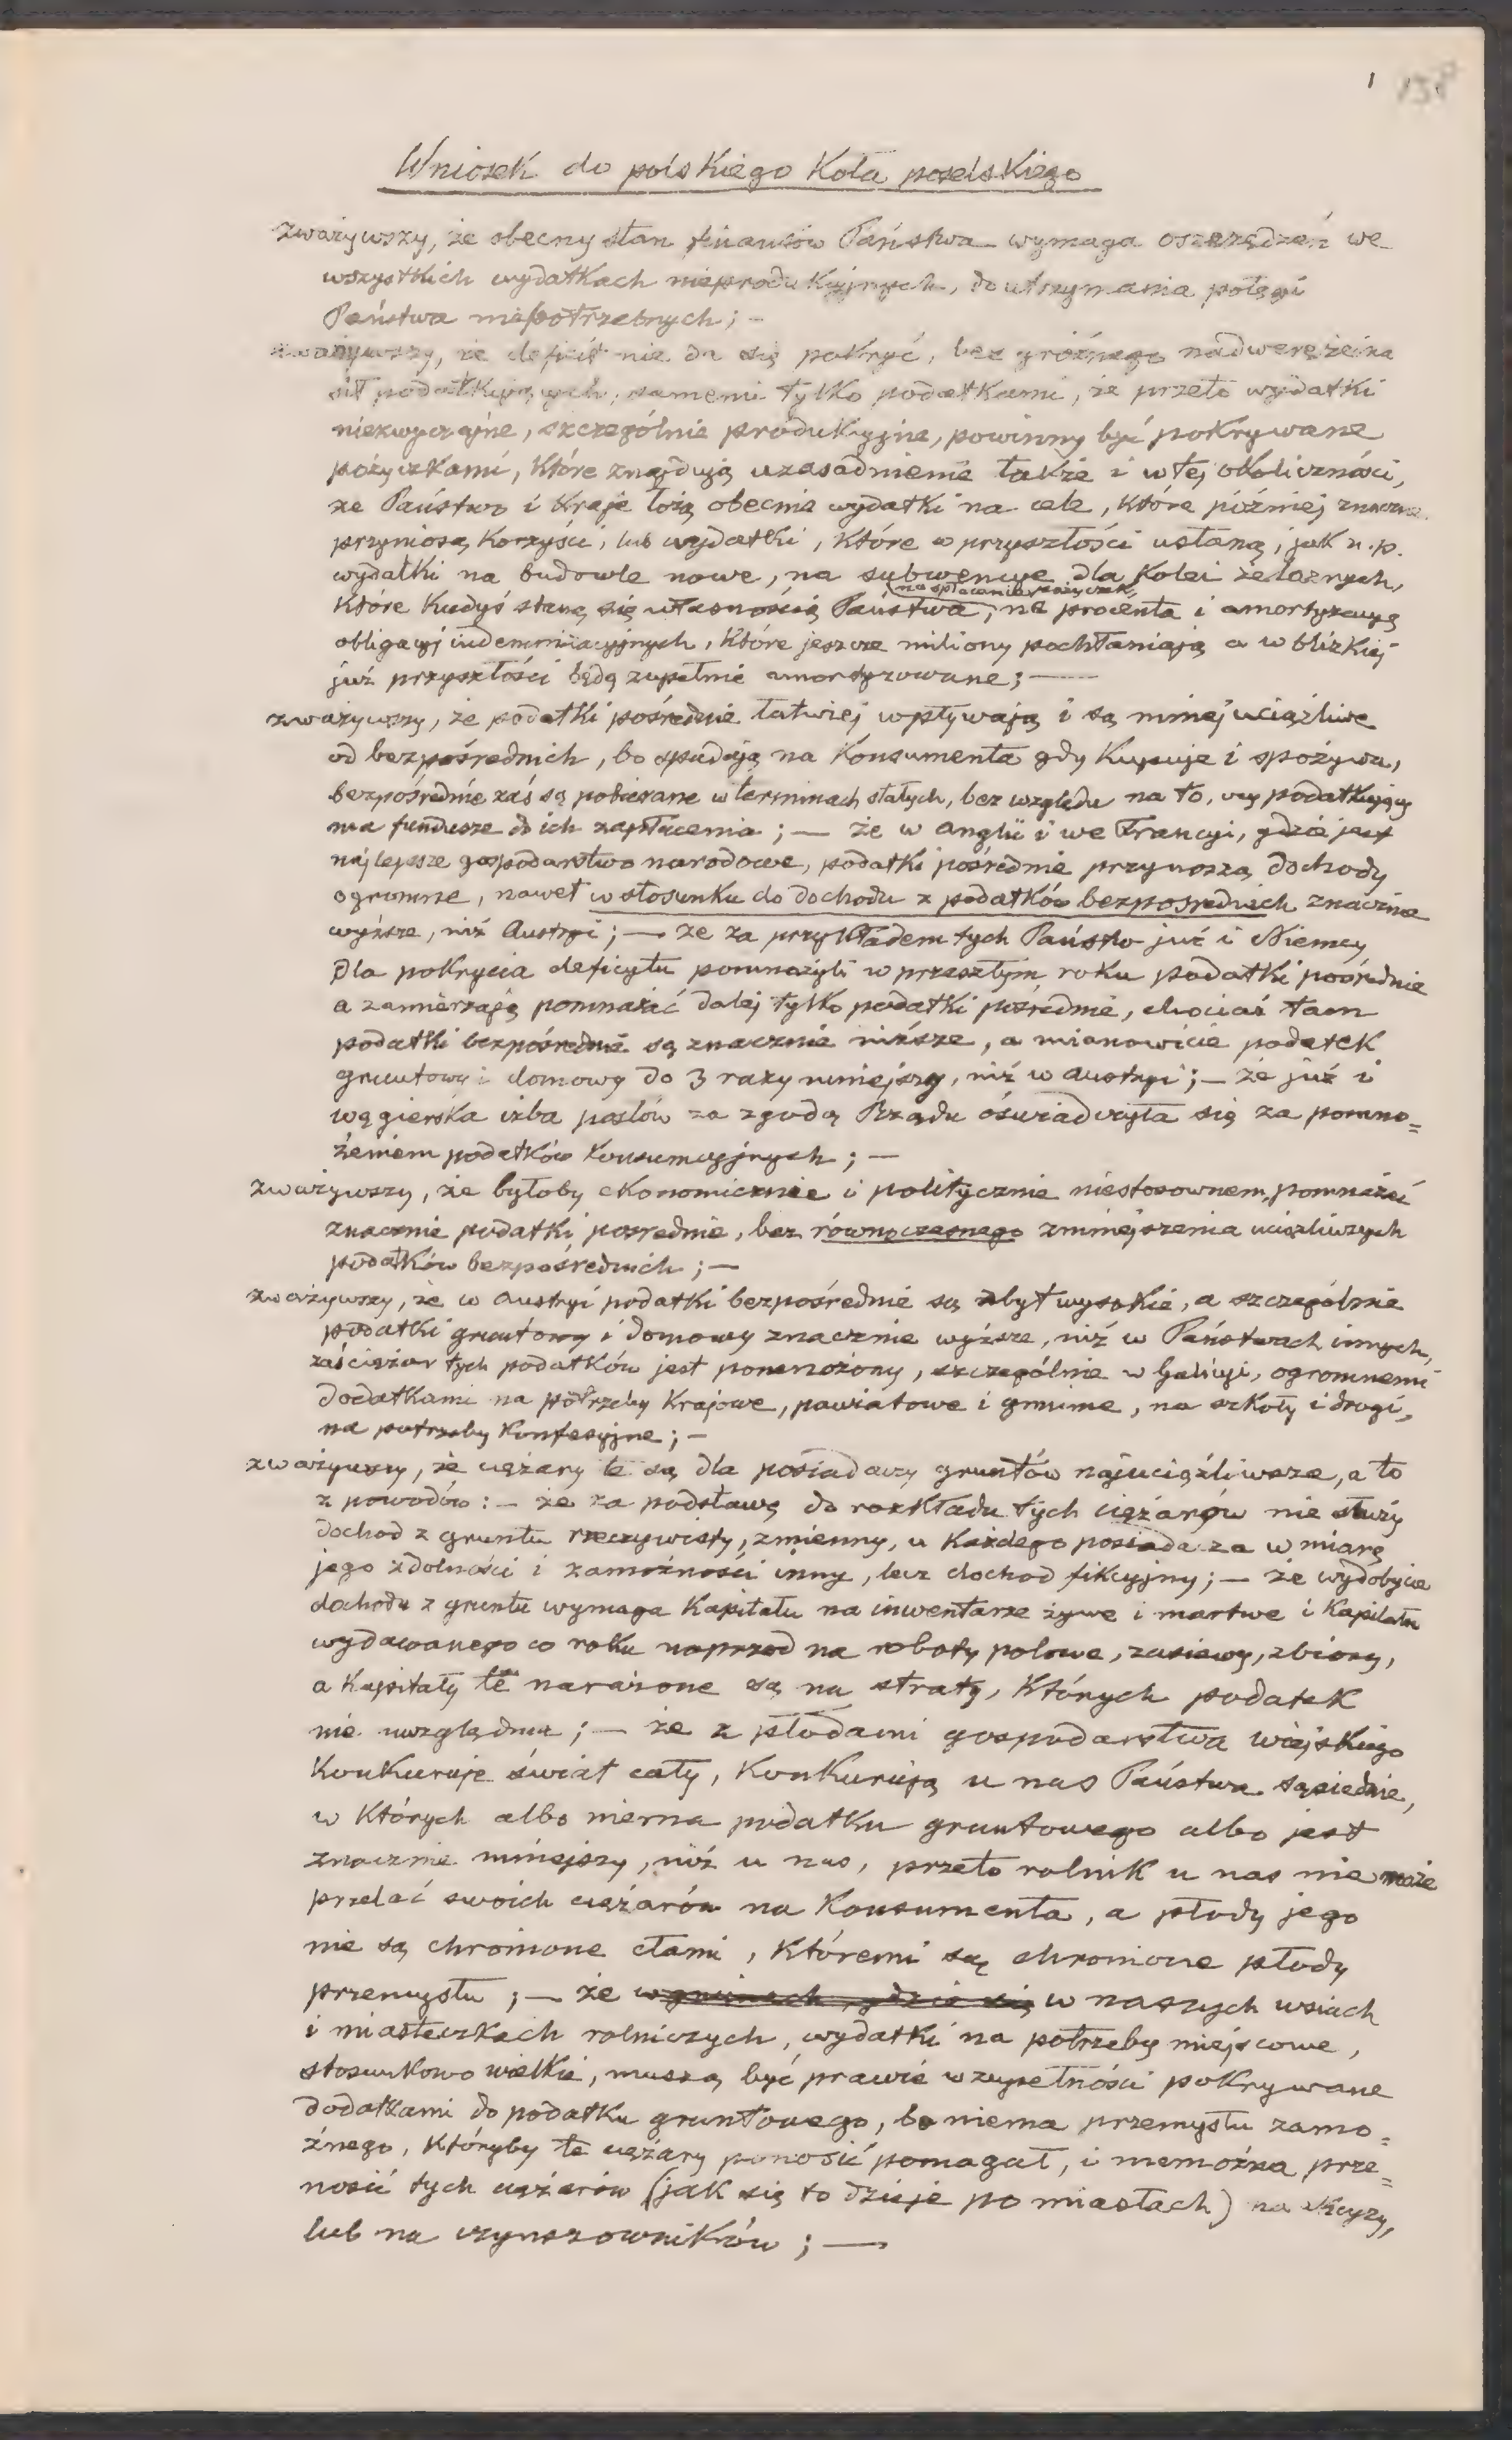 1 138
Wniosek do polskiego Koła poselskiego
zważywszy, że obecny stan finansów Państwa wymaga oszczędzeń we
wszystkich wydatkach nieprodukcyjnych, do utrzymania potęgi
Państwa niepotrzebnych; -
zważywszy, że deficit nie da się pokryć, bez groźnego nadwerężenia
sił podatkujących, samemi tylko podatkami, że przeto wydatki
niezwyczajne, szczególnie produkcyjne, powinny być pokrywane
pożyczkami, które znajdują uzasadnienie także i w tej okoliczności,
że Państwo i kraje łożą obecnie wydatki na cele, które później znaczne
przyniosą korzyści, lub wydatki, które w przyszłości ustaną, jak n.p.
wydatki na budowle nowe, na subwencye dla kolei żelaznych,
na spłacenie pożyczek,
które kiedyś staną się własnością Państwa, na procenta i amortyzacyą
obligacyj indemnizacyjnych, które jeszcze miliony pochłaniają a w blizkiej
już przyszłości będą zupełnie amortyzowane; —
zważywszy, że podatki pośrednie łatwiej wpływają i są mniej uciążliwe
od bezpośrednich, bo spadają na Konsumenta gdy kupuje i spożywa,
bezpośrednie zaś są pobierane w terminach stałych, bez względu na to, czy podatkujący
ma fundusze do ich zapłacenia; — że w Anglii i we Francyi, gdzie jest
najlepsze gospodarstwo narodowe, podatki pośrednie przynoszą dochody
ogromne, nawet w stosunku do dochodu z podatków bezpośrednich znacznie
wyższe, niż Austryi; — że za przykładem tych Państw już i Niemcy
dla pokrycia deficytu pomnożyli w przeszłym roku podatki pośrednie
a zamierzają pomnażać dalej tylko podatki pośrednie, chociaż tam
podatki bezpośrednie są znacznie niższe, a mianowicie podatek
gruntowy i domowy do 3 razy mniejszy, niż w Austryi; — że już i
węgierska izba posłów za zgodą Rządu oświadczyła się za pomno=
żeniem podatków konsumcyjnych; —
zważywszy, że byłoby ekonomicznie i politycznie niestosownem, pomnażać
znacznie podatki pośrednie, bez równoczesnego zmniejszenia uciążliwszych
podatków bezpośrednich; —
zważywszy, że w Austryi podatki bezpośrednie są zbyt wysokie, a szczególnie
podatki gruntowy i domowy znacznie wyższe, niż w Państwach innych,
zaś ciężar tych podatków jest pomnożony, szczególnie w Galicyi, ogromnemi
dodatkami na potrzeby krajowe, powiatowe i gminne, na szkoły i drogi,
na potrzeby konfesyjne; —
zważywszy, że ciężary te są dla posiadaczy gruntów najuciążliwsze, a to
z powodów: — że za podstawę do rozkładu tych ciężarów nie służy
dochod z gruntu rzeczywisty, zmienny, u każdego posiadacza w miarę
jego zdolności i zamożności inny, lecz dochod fikcyjny; — że wydobycie
dochodu z gruntu wymaga Kapitału na inwentarze żywe i martwe i Kapitału
wydawanego co roku naprzod na roboty polowe, zasiewy, zbiory,
a Kapitały te narażone są na straty, których podatek
nie uwzględnia; — że z płodami gospodarstwa wiejskiego
Konkuruje świat cały, Konkurują u nas Państwa sąsiednie,
w których albo niema podatku gruntowego albo jest
znacznie mniejszy, niż u nas, przeto rolnik u nas nie może
przelać swoich ciężarów na Konsumenta, a płody jego
nie są chronione cłami, któremi są chronione płody
przemysłu; — że w gminach, gdzie się w naszych wsiach
i miasteczkach rolniczych, wydatki na potrzeby miejscowe,
stosunkowo wielkie, muszą być prawie w zupełności pokrywane
dodatkami do podatku gruntowego, bo niema przemysłu zamo=
żnego, któryby te ciężary ponosić pomagał, i niemożna prze=
nosić tych ciężarów (jak się to dzieje po miastach) na
lub na czynszowników; —